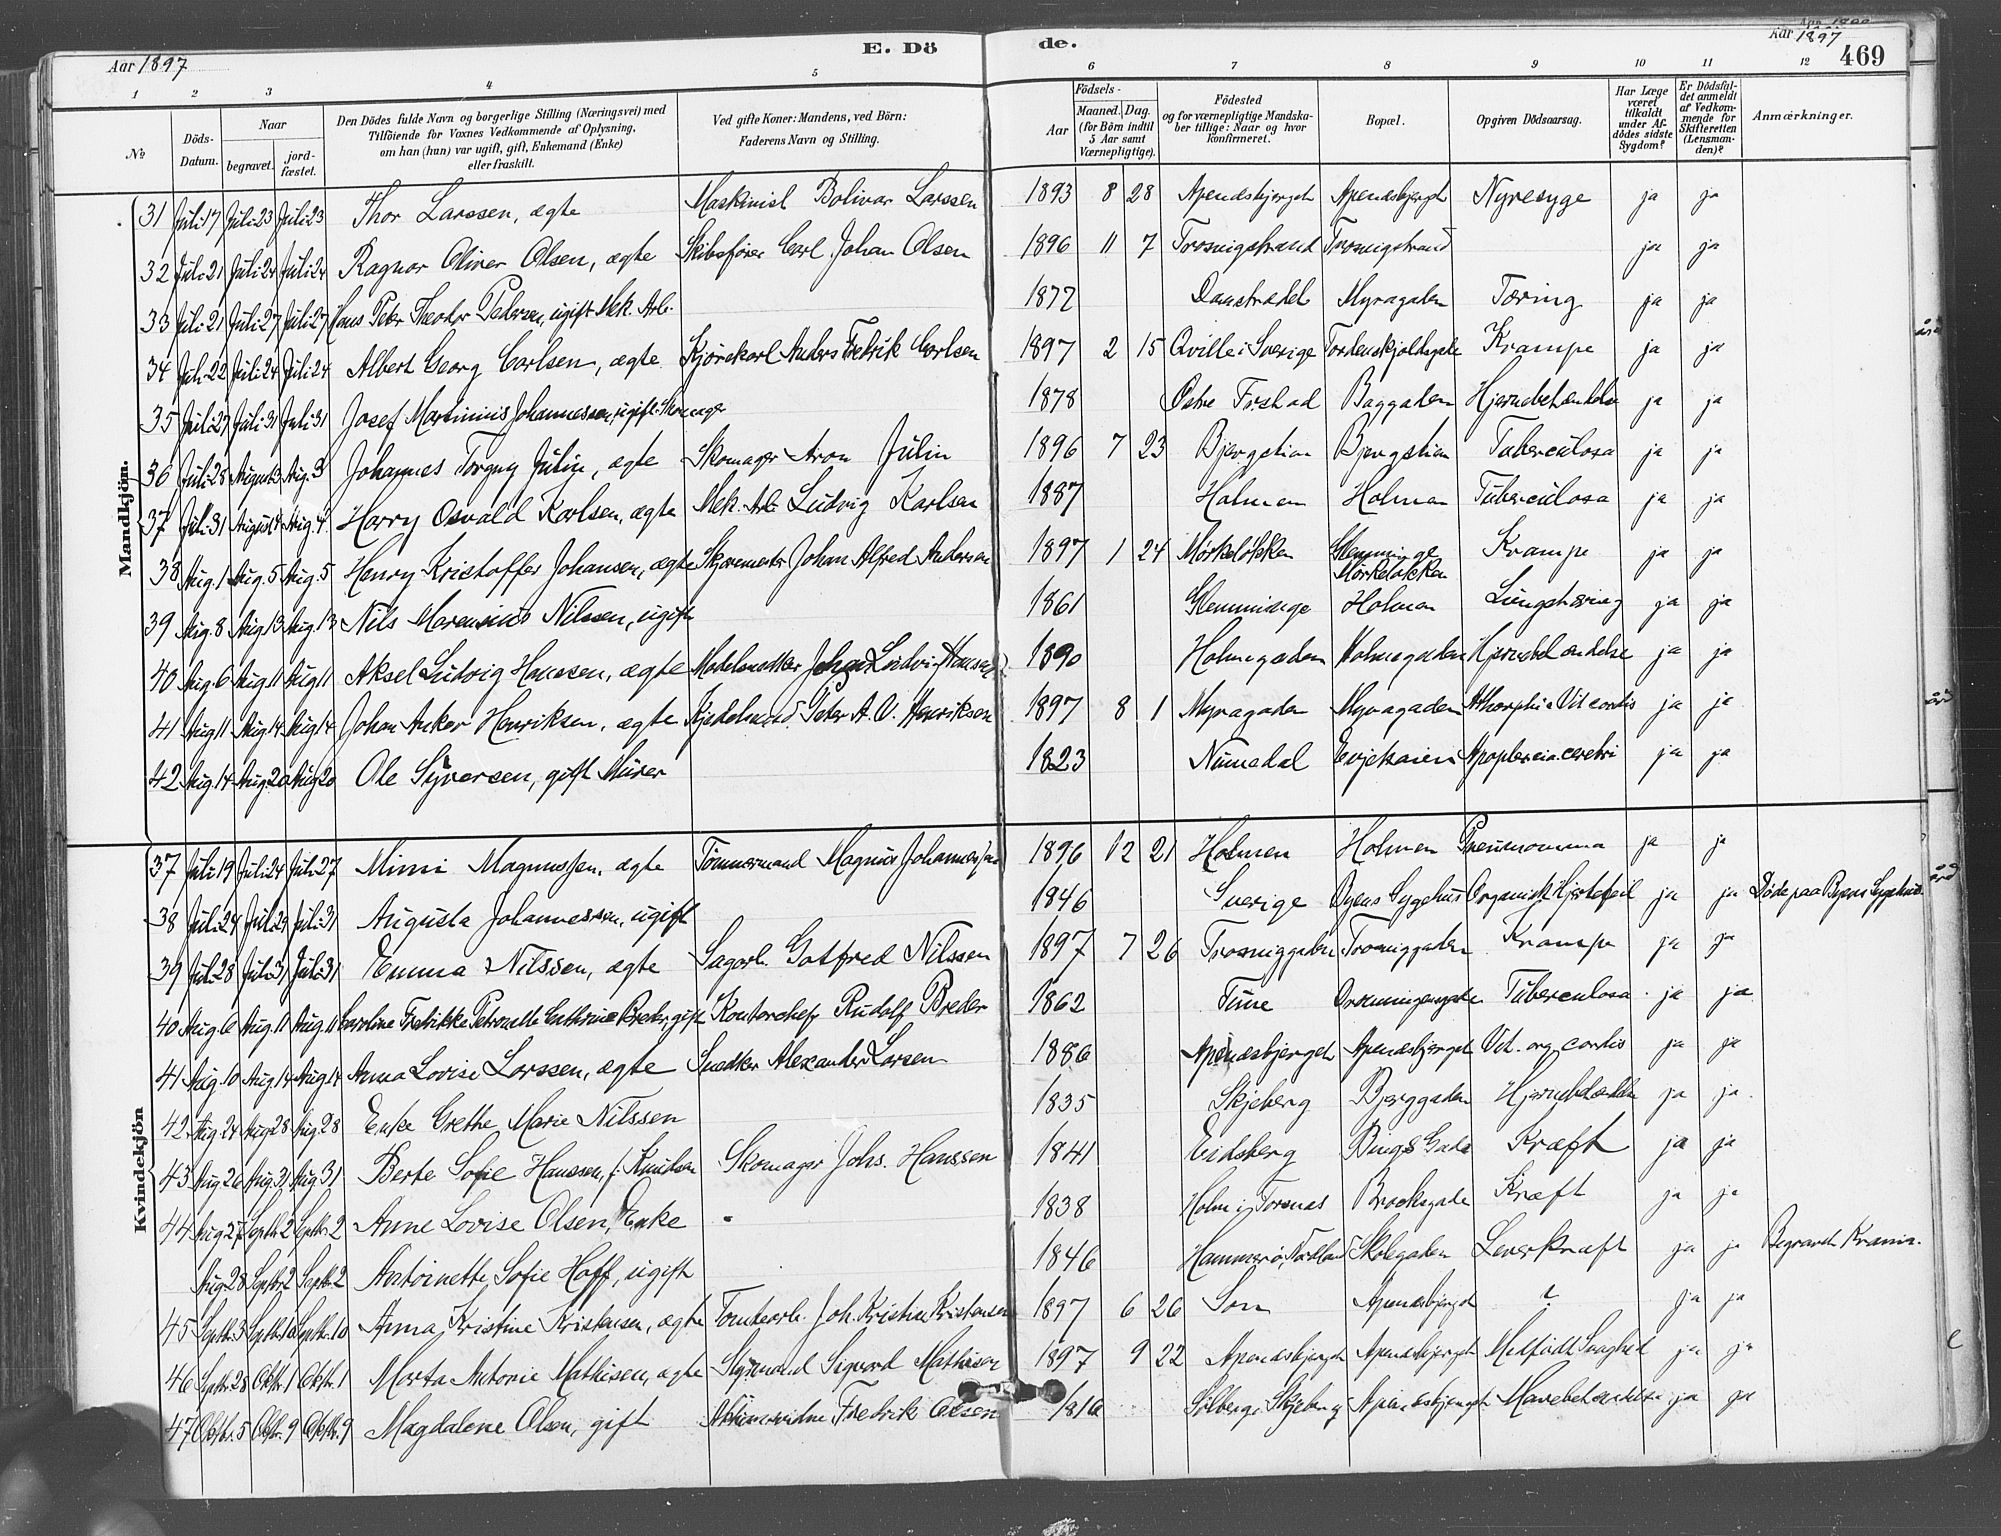 Aar 1897
E. Dö
de.
Aar 1897
469
1 2 3 4 5 6 7 8 9 10 11 12
No
Döds-Datum.
Naar
begravet.
jord-fæstet.
Den Dödes fulde Navn og borgerlige Stilling (Næringsvei) med
Tilföiende for Voxnes Vedkommende af Oplysning,
om han (hun) var ugift, gift, Enkemand (Enke)
eller fraskilt.
Ved gifte Koner: Mandens, ved Börn:
Faderens Navn og Stilling.
Födsels-
Aar
Maaned. Dag.
(for Börn indtil
5 Aar samt
Værnepligtige).
Födested
og for værnepligtige Mandska-
ber tillige: Naar og hvor
konfirmeret.
Bopæl.
Opgiven Dödsaarsag.
Har Læge
været
tilkaldt
under Af-
dödes sidste
Sygdom?
Er Dödsfal-
det anmeldt
af Vedkom-
mende for
Skifteretten
(Lensman-
den)?
Anmærkninger.
Mandkjön.
31 Juli 17 Juli 23 Juli 23 Thor Larssen, ægte Maskinist Bolivar Larssen 1893 8 28 Apenæsbjerget Apenæsbjergt Nyresyge ja ja
32 Juli 21 Juli 24 Juli 24 Ragnar Oliver Olsen, ægte Skibsfører Carl Johan Olsen 1896 11 7 Trosvigstrand Trosvigstrand ja ja
33 Juli 21 Juli 27 Juli 27 Hans Peter Theodor Pedersen, ugift Mek. Arb. 1877 Damstrædet Myragaden Tæring ja ja
34 Juli 22 Juli 24 Juli 24 Albert Georg Carlsen, ægte Kjørekarl Anders Fredrik Carlsen 1897 2 15 Qville i Sverige Tordenskjoldsgade Krampe ja ja
35 Juli 27 Juli 31 Juli 31 Josef Martinius Johannessen, ugift Skomager 1878 Østre Forstad Baggaden Hjernebetændelse ja ja
36 Juli 28 August 3 Aug. 3 Johannes Torgny Julin, ægte Skomager Aron Julin 1896 7 23 Bjergstien Bjergstien Tuberculosa ja ja
37 Juli 31 August 4 Aug. 4 Harry Osvald Karlsen, ægte Mek. Arb. Ludvig Karlsen 1887 Holmen Holmen Tuberculosa ja ja
38 Aug. 1 Aug. 5 Aug. 5 Henry Kristoffer Johansen, ægte Skjæremester Johan Alfred Andersen 1897 1 24 Mørkeløkken Glemminge Mørkeløkken Krampe ja ja
39 Aug. 8 Aug 13 Aug. 13 Nils Marensius Nilssen, ugift 1861 Glemminge Holmen Lungetæring ja ja
40 Aug. 6 Aug 11 Aug 11 Aksel Ludvig Hanssen, ægte Modelsnedker Johan Ludvig Hanssen 1890 Holmegaden Holmegaden Hjernebetændelse ja ja
41 Aug 11 Aug 14 Aug 14 Johan Anker Henriksen, ægte Kjedelsmed Peter A. O. Henriksen 1897 8 1 Myragaden Myragaden Athrophia Vit cordis ja ja
42 Aug. 14 Aug. 20 Aug 20 Ole Syversen, gift Murer 1823 Numedal Evjekaien Apoplexia cerebri ja ja
Kvindekjön
37 Juli 19 Juli 24 Juli 27 Mimi Magnussen, ægte Tømmermand Magnus Johannessen 1896 12 21 Holmen Holmen ja ja
38 Juli 24 Juli 29 Juli 31 Augusta Johannessen, ugift 1846 Sverige Byens Sygehus Organisk Hjertefeil ja ja Døde paa Byens Sygehus.
39 Juli 28 Juli 31 Juli 31 Emma Nilssen, ægte Sagarb. Gotfred Nilssen 1897 7 26 Trosviggaden Trosviggaden Krampe ja ja
40 Aug 6 Aug. 11 Aug. 11 Caroline Fredrikke Petronelle Cathrine Breder, gift Kontorchef Rudolf Breder 1862 Tune Dronningensgade Tuberculosa ja ja
41 Aug. 10 Aug 14 Aug 14 Anna Lovise Larssen, ægte Snedker Alexander Larsen 1886 Apenæsbjerget Apenæsbjerget Vit. org. cordis ja ja
42 Aug. 24 Aug 28 Aug 28 Enke Grethe Marie Nilssen 1835 Skjeberg Bjerggaden ja ja
43 Aug 26 Aug 31 Aug 31 Berte Sofie Hanssen, f. Knudsen Skomager Johs. Hanssen 1841 Eidsberg Bings Gade Kræft ja ja
44 Aug 27 Septb. 2 Septb. 2 Anne Lovise Olsen, Enke 1838 Holm i Torsnæs Brocksgade Kræft ja ja
Aug 28 Septb 2 Septb 2 Antoinette Sofie Hoff, ugift 1846 Hammerø, Nordland Skolegaden Leverkræft ja ja Begravet Krania.
45 Septb. 3 Septb. 10 Septb. 10 Anna Kristine Kristensen, ægte Tomtearb. Joh. Kristian Kristensen 1897 6 26 Son Apenæsbjerget ? ja ja
46 Septb 28 Oktb. 1 Oktb. 1 Marta Antonie Mathisen, ægte Styrmand Sigvard Mathisen 1897 9 22 Apenæsbjerget Apenæsbjerget Medfødt Svaghed ja ja
47 Oktbr. 5 Oktb. 9 Oktb. 9 Magdalene Olsen, gift Fredrik Olsen Solberg i Skjeberg Apenæsbjerget Mavebetændelse ja ja